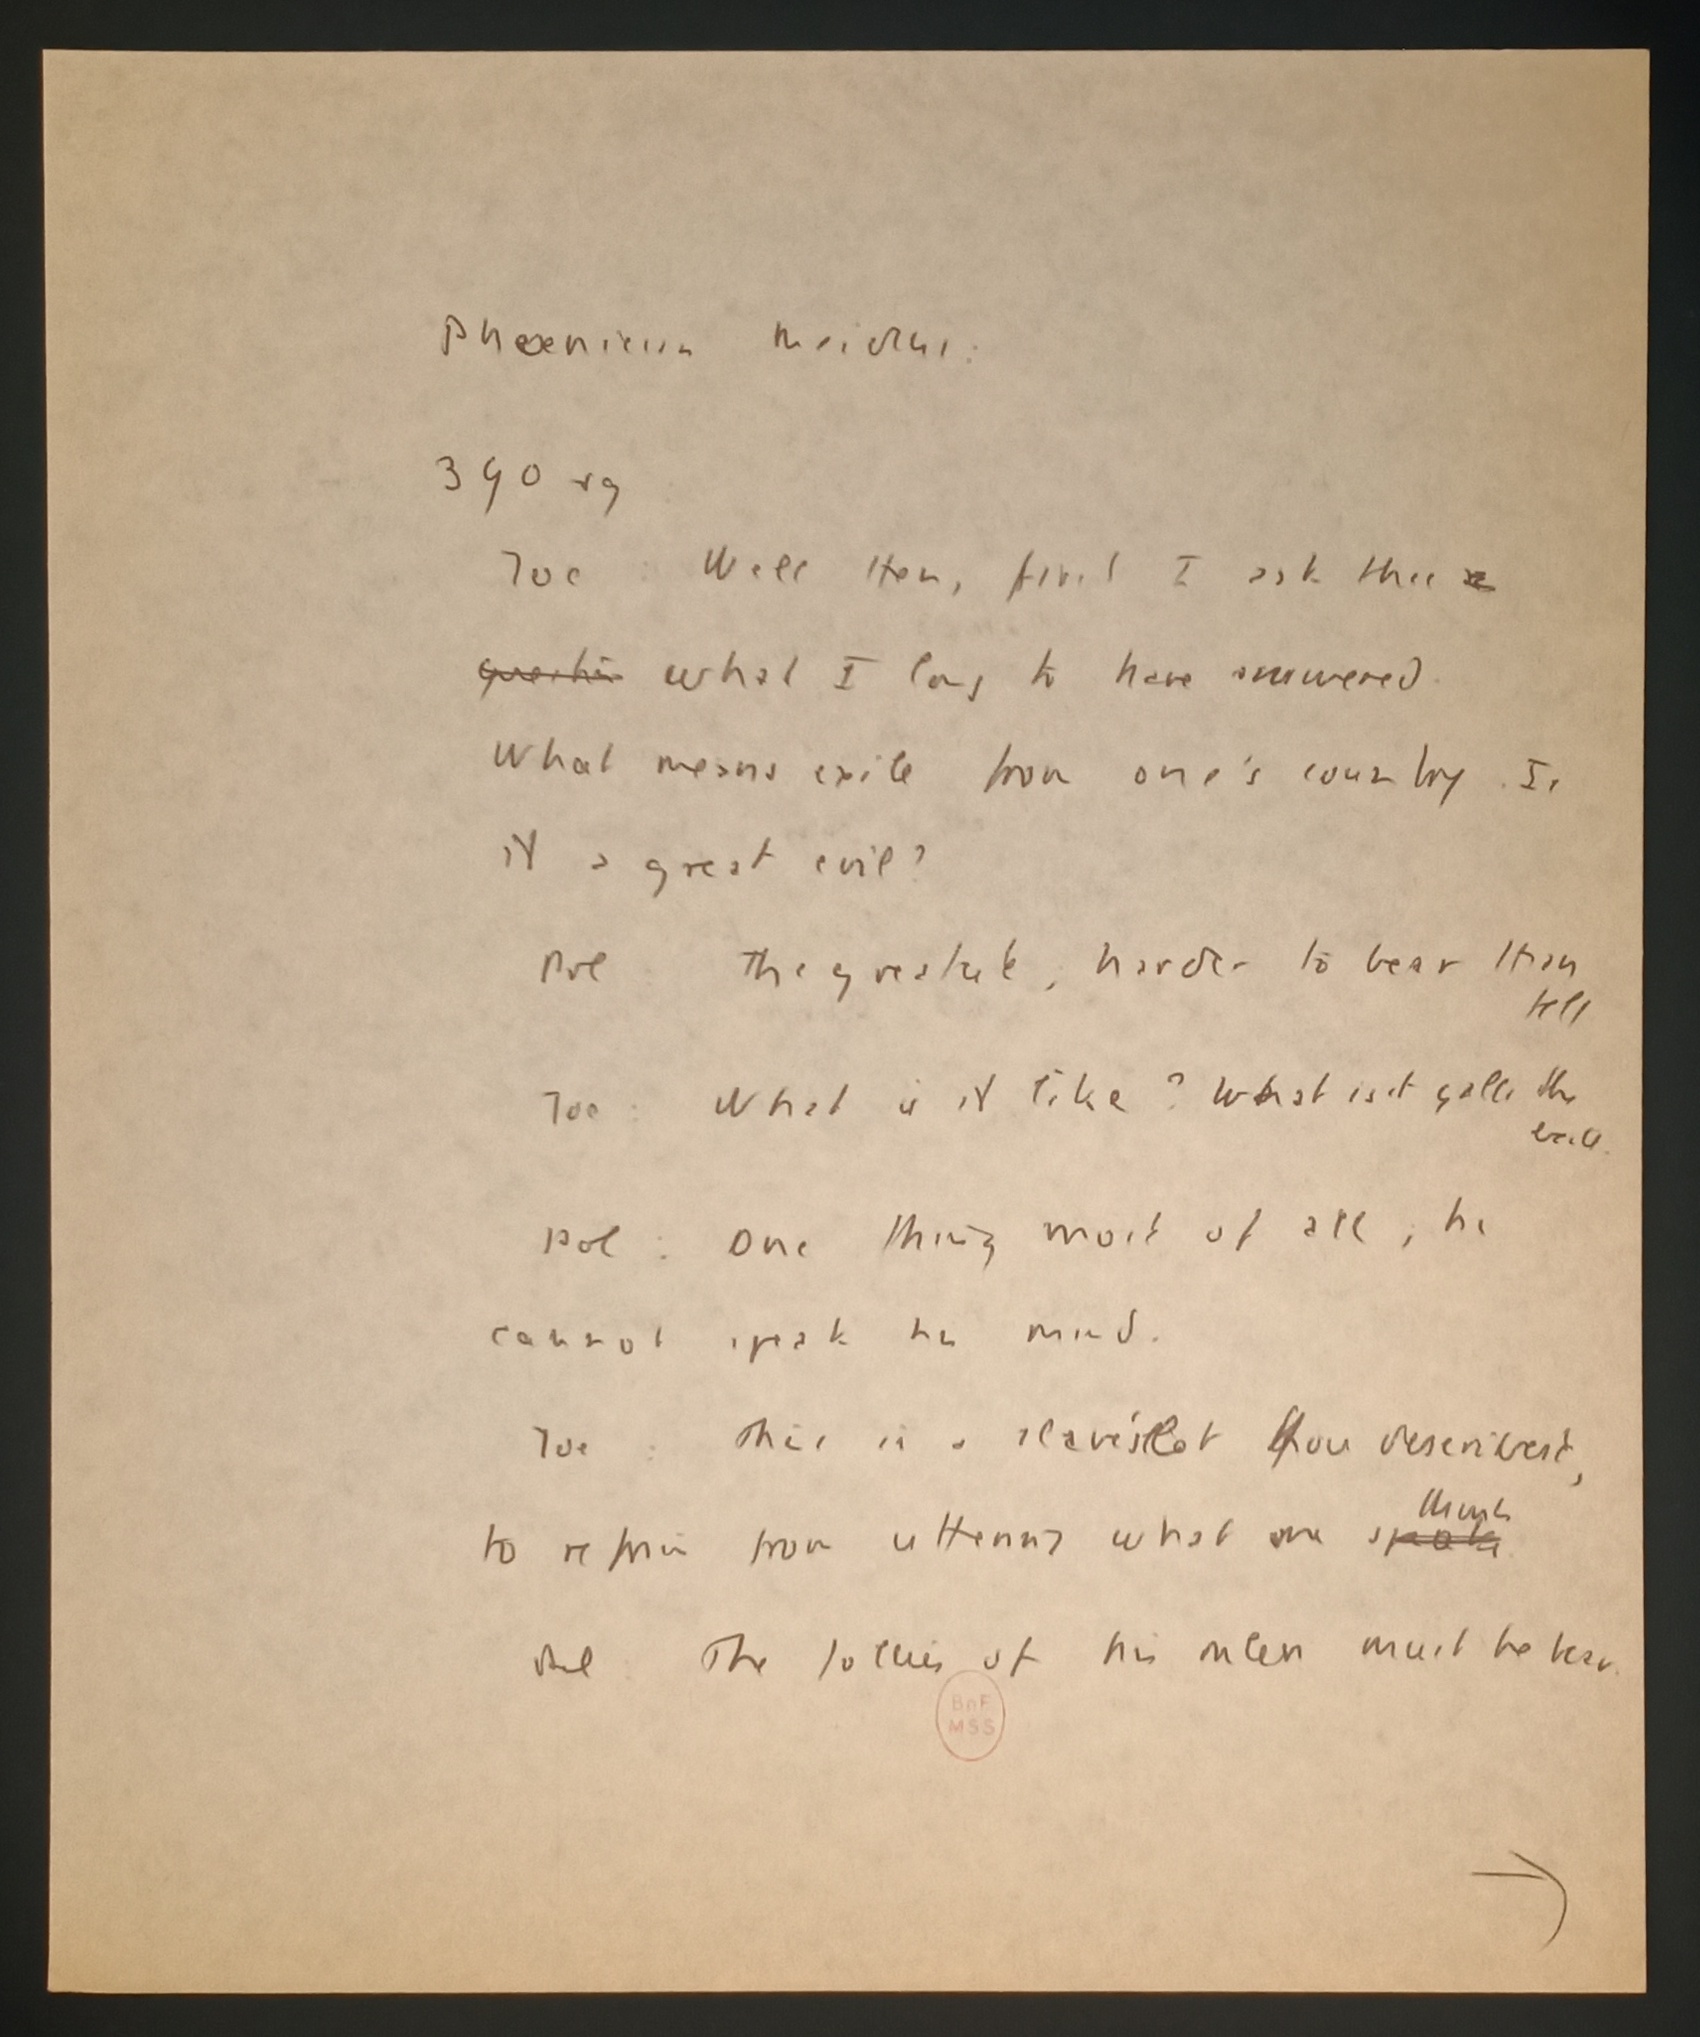 Phoenician Maidens:
390 sq
Joc : Well then, first I ask thee a
question what I long to have answered.
What means exile from one's country. Is
it a great evil?
Pol : The greatest, harder to bear than
tell
Joc : What is it like? What is it galls the
exile.
Pol : One thing most of all, he
cannot speak his mind.
Joc : This is a slave's lot thou describest,
to refrain from uttering what one
thinks
spoke
Pol : The follies of his rulers must he bear.
BnF
MSS